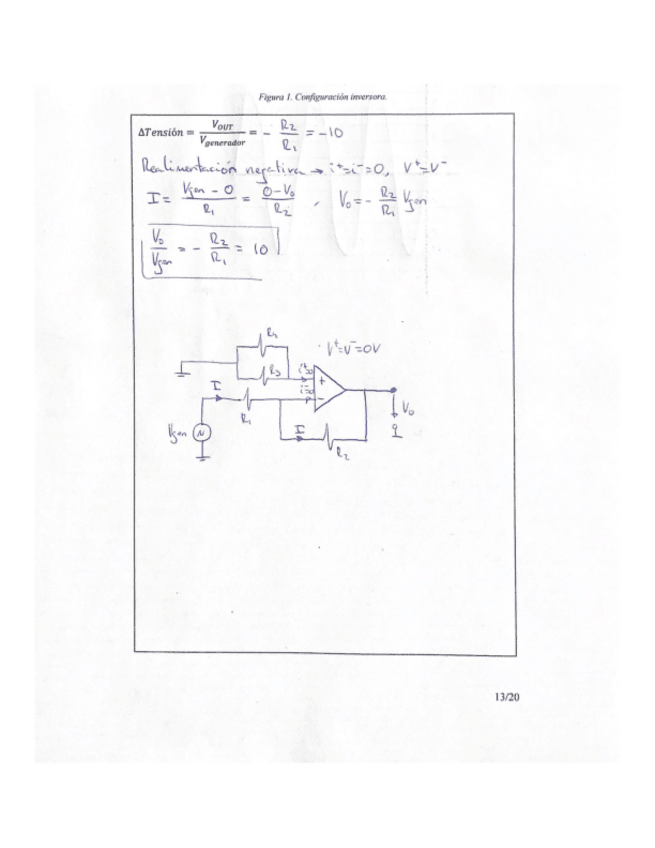 Figura 1. Configuración inversora.
ΔTensión = V_OUT / V_generador = - R2 / R1 = -10
Realimentación negativa → i⁺=i⁻=0, V⁺=V⁻
I = Vgen - 0 / R1 = 0-Vo / R2 , Vo = - R2 / R1 Vgen
Vo / Vgen = - R2 / R1 = 10
R4
V⁺=V⁻=0V
R3
i⁺=0
+
I
i⁻=0
-
R1
Vo
Vgen
N
I
R2
13/20